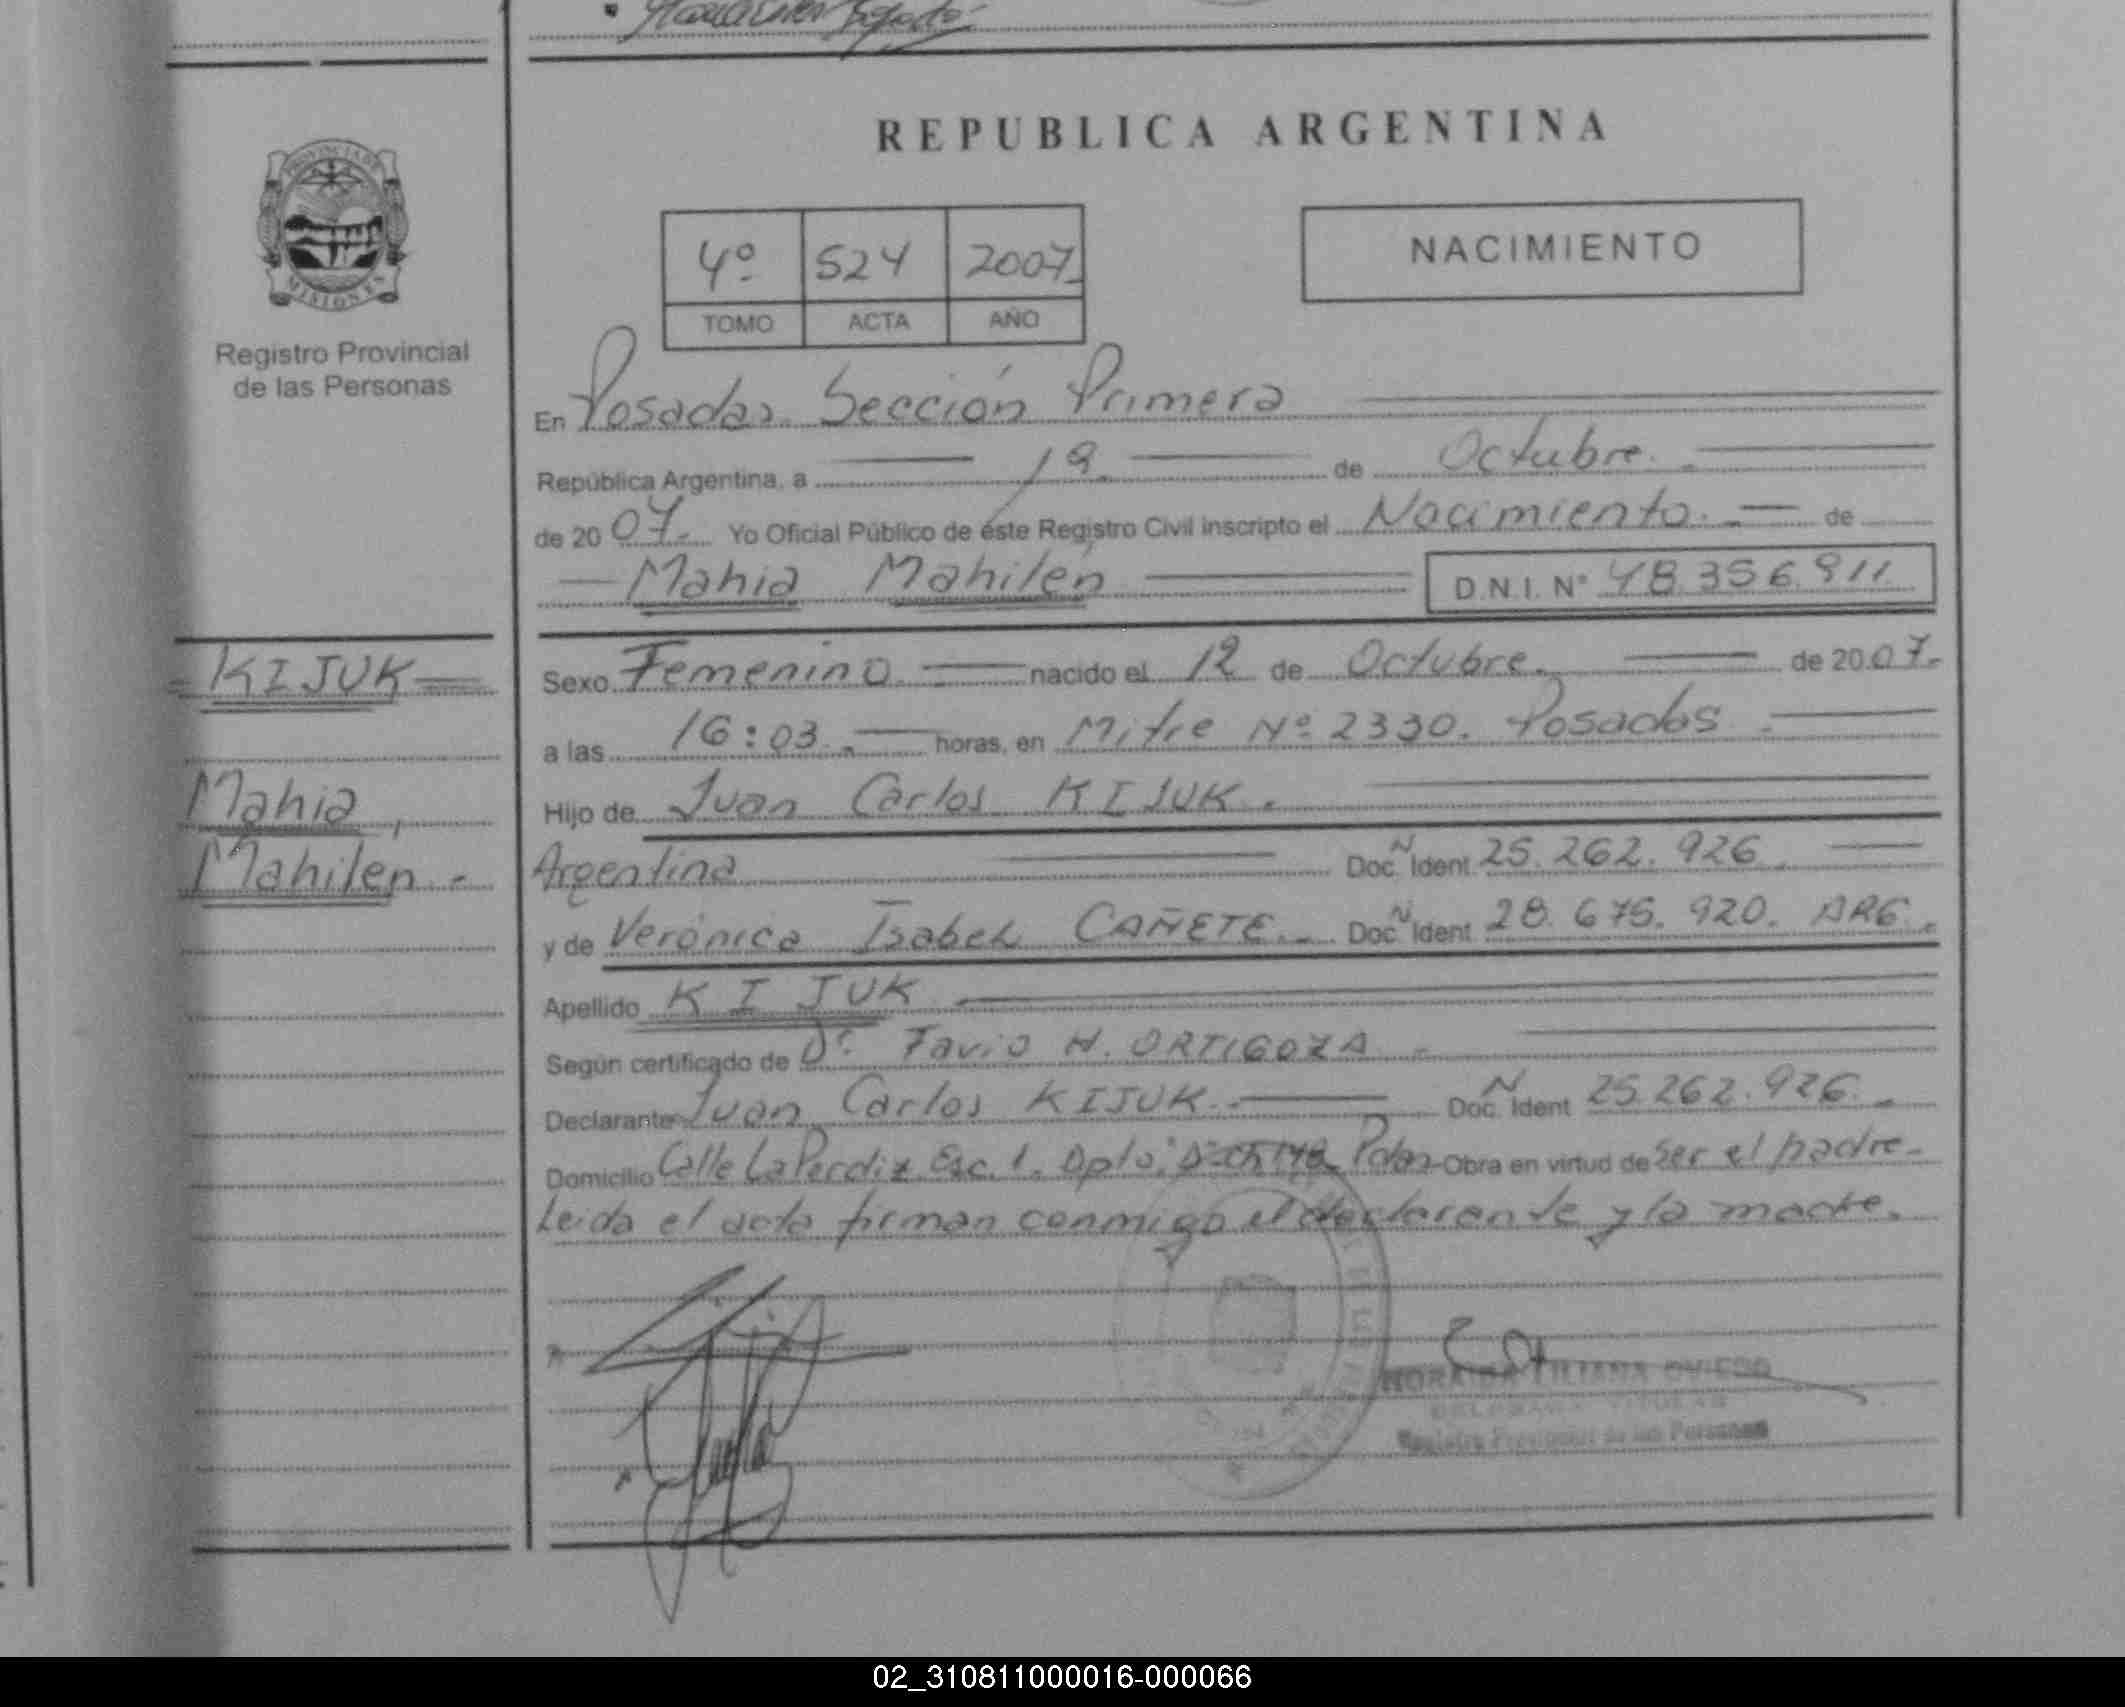 REPUBLICA ARGENTINA
PROVINCIA DE
MISIONES
Registro Provincial
de las Personas
4º 524 2007
TOMO ACTA AÑO
NACIMIENTO
En Posadas. Sección Primera
República Argentina, a 19 de Octubre.
de 2007. Yo Oficial Público de éste Registro Civil inscripto el Nacimiento. de
Mahia Mahilén D.N.I. Nº 48.356.911
KIJUK
Mahia,
Mahilen.
Sexo Femenino nacido el 12 de Octubre. de 2007.
a las 16:03. horas, en Mitre Nº 2330. Posadas
Hijo de Juan Carlos KIJUK.
Argentina Doc. N Ident. 25.262.926
y de Verónica Isabel CAÑETE. Doc. N Ident. 28.675.920. ARG.
Apellido KIJUK
Según certificado de Dr. Favio H. ORTIGOZA
Declarante Juan Carlos KIJUK. Doc. N Ident 25.262.926.
Domicilio Calle La Perdiz Esc. 1. Dpto. Pdas. Obra en virtud de ser el padre.
Leída el acta firman conmigo el declarante y la madre.
LILIANA OVIEDO
Registro Provincial de las Personas
02_310811000016-000066